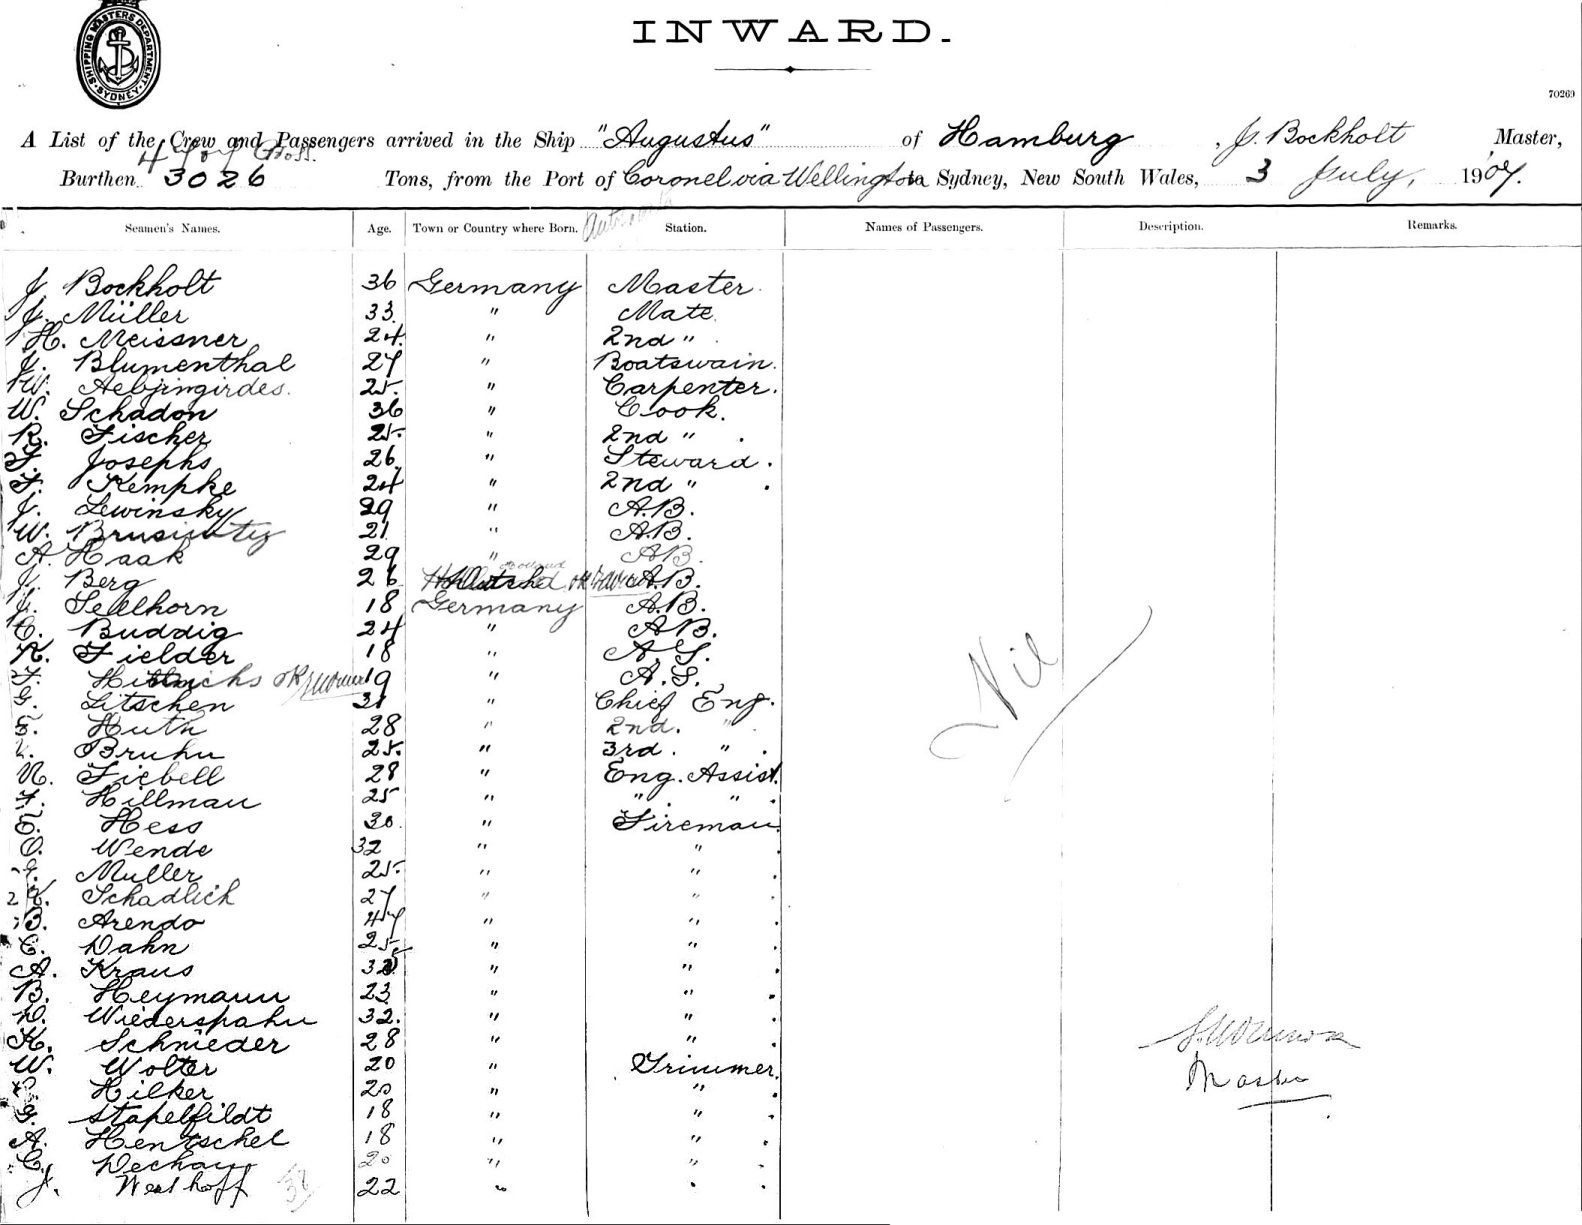 SHIPPING MASTERS DEPARTMENT
SYDNEY
INWARD.
70269
A List of the Crew and Passengers arrived in the Ship "Augustus" of Hamburg, J. Bockholt Master,
4707 Gross.
Burthen 3026 Tons, from the Port of Coronel via Wellington to Sydney, New South Wales, 3 July, 1907.
Seamen's Names. Age. Town or Country where Born. Station. Names of Passengers. Description. Remarks.
J. Bockholt 36 Germany Master.
J. Müller 33. " Mate.
H. Meissner 24. " 2nd "
J. Blumenthal 27 " Boatswain.
W. 25. " Carpenter.
W. Schadon 36 " Cook.
R. Fischer 25. " 2nd " .
Josephs 26. " Steward.
F. Kempke 24 " 2nd " .
J. Lewinsky 29 " A.B.
W. 21 " A.B.
A. Haak 29 " AB
J. Berg 26 Holland A.B.
J. Sellhorn 18 Germany A.B.
C. Buddig 24 " AB.
K. Fielder 18 " A.S.
F. 19 " A.S.
G. Litschen 31 " Chief Eng.
Huth 28 " 2nd. "
Bruhn 25. " 3rd. " .
N. Fiebell 28 " Eng. Assist.
F. Hillman 25 " " " .
Hess 30. " Fireman
O. Wende 32 " " .
Muller 25. " " .
K. Schadlich 27 " " .
B. Arendo 47 " " .
C. Dahn 25 " " .
A. Kraus " " .
B. Heymann 23 " " .
D. Wiederspahn 32. " " .
K. Schnieder 28 " " .
W. Wolter 20 " Trimmer.
Hilker 20 " " .
G. Stapelfildt 18 " "
A. Hentschel 18 " " .
C. Dechau 20 " " .
J. Westhoff 22 " " .
38
Nil
Master